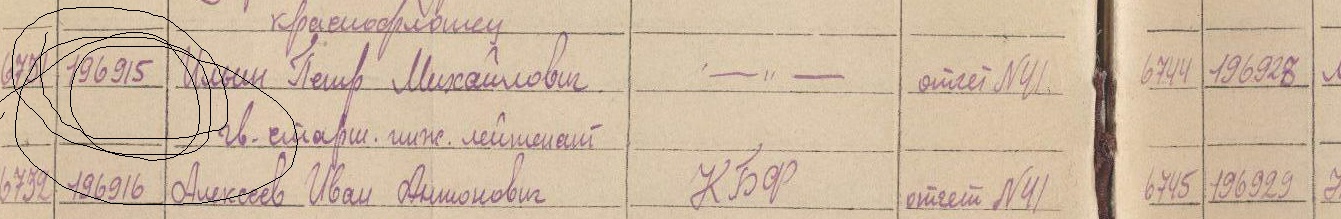 краснофлотец
6731 196915 Ильин Петр Михайлович — " — отчет №41. 6744 196928
гв. старш. инж. лейтенант
6732 196916 Алексеев Иван Антонович КБФ отчет №41 6745 196929